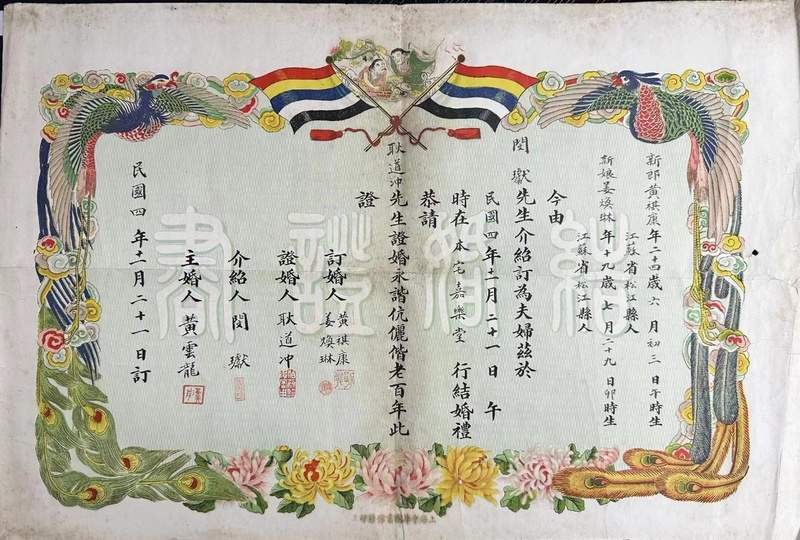 結婚證書
新郎黃祺康年二十四歲六月初三日午時生
江蘇省松江縣人
新娘姜煥琳年十九歲七月二十九日卯時生
江蘇省松江縣人
今由
閔獻先生介紹訂為夫婦茲於
民國四年十一月二十一日午
時在本宅嘉樂堂行結婚禮
恭請
耿道沖先生證婚永諧伉儷偕老百年此
證
訂婚人黃祺康
姜煥琳
證婚人耿道沖
介紹人閔獻
主婚人黃雲龍
民國四年十一月二十一日訂